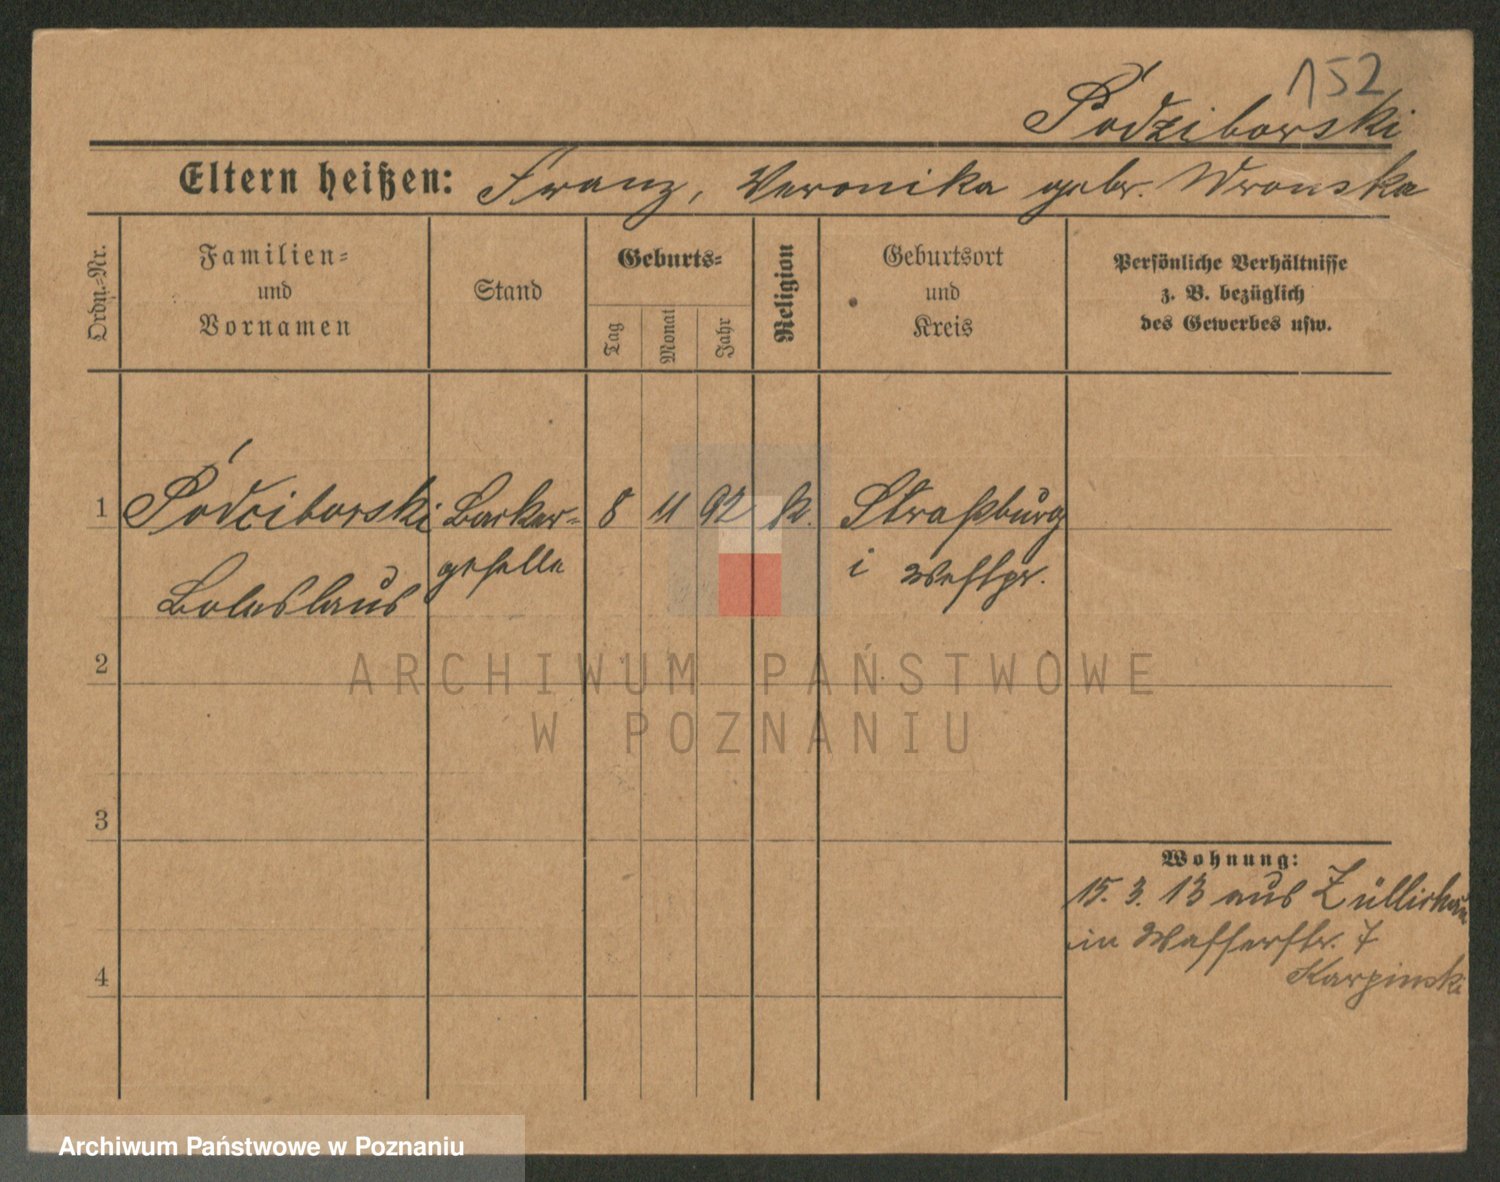 152
Pódziborski
Eltern heißen: Franz, Veronika gebr. Wronska
Ordn.-Nr.
Familien-
und
Vornamen
Stand
Geburts-
Tag
Monat
Jahr
Religion
Geburtsort
und
Kreis
Persönliche Verhältnisse
z. B. bezüglich
des Gewerbes usw.
1 Pódciborski Bäcker- 8 11 92 k. Straßburg
geselle i Westpr.
Boleslaus
2
ARCHIWUM PAŃSTWOWE
W POZNANIU
3
Wohnung:
15. 3. 13 aus Züllichau
in Wasserstr. 7
4
Karpinski
Archiwum Państwowe w Poznaniu